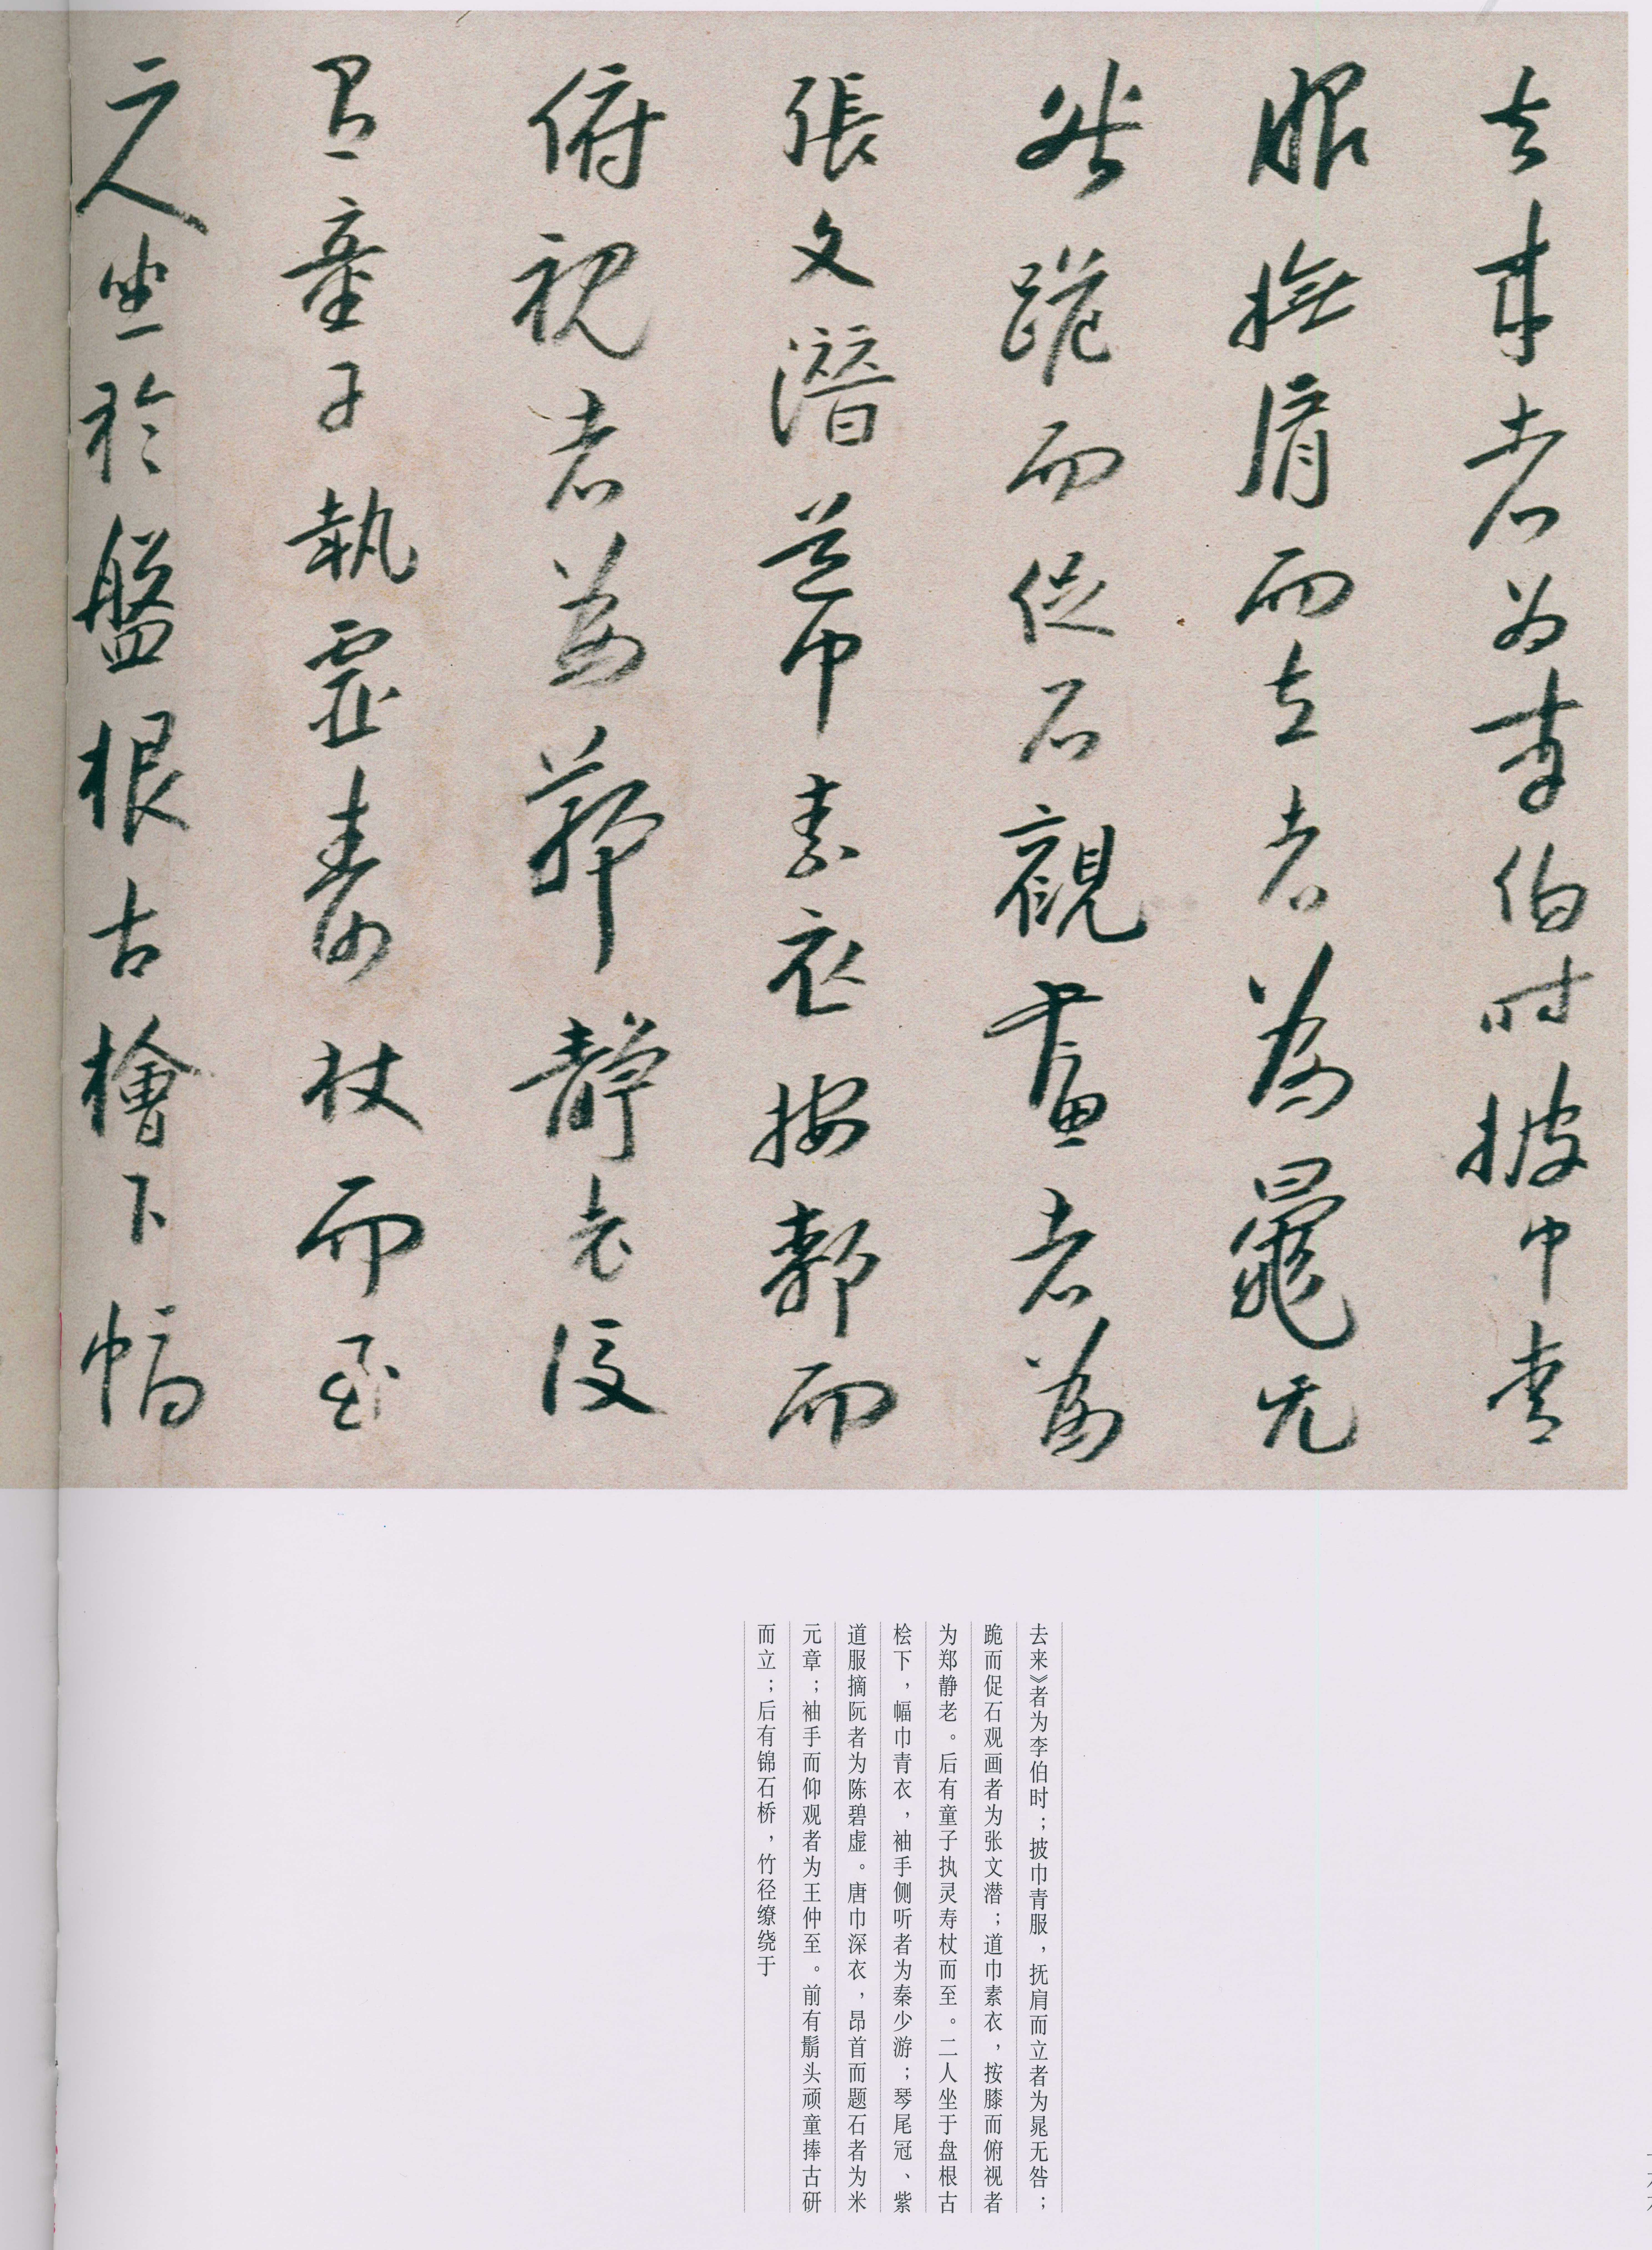 去来者为李伯时披巾青
服撫肩而立者為鼂无
咎跪而促石觀畫者為
張文潛道巾素衣按郄而
俯視者為鄭靜老後
有童子執靈壽杖而至
二人坐於盤根古檜下幅
去来》者为李伯时；披巾青服，抚肩而立者为晁无咎；
跪而促石观画者为张文潜；道巾素衣，按膝而俯视者
为郑静老。后有童子执灵寿杖而至。二人坐于盘根古
桧下，幅巾青衣，袖手侧听者为秦少游；琴尾冠、紫
道服摘阮者为陈碧虚。唐巾深衣，昂首而题石者为米
元章；袖手而仰观者为王仲至。前有鬅头顽童捧古研
而立；后有锦石桥，竹径缭绕于